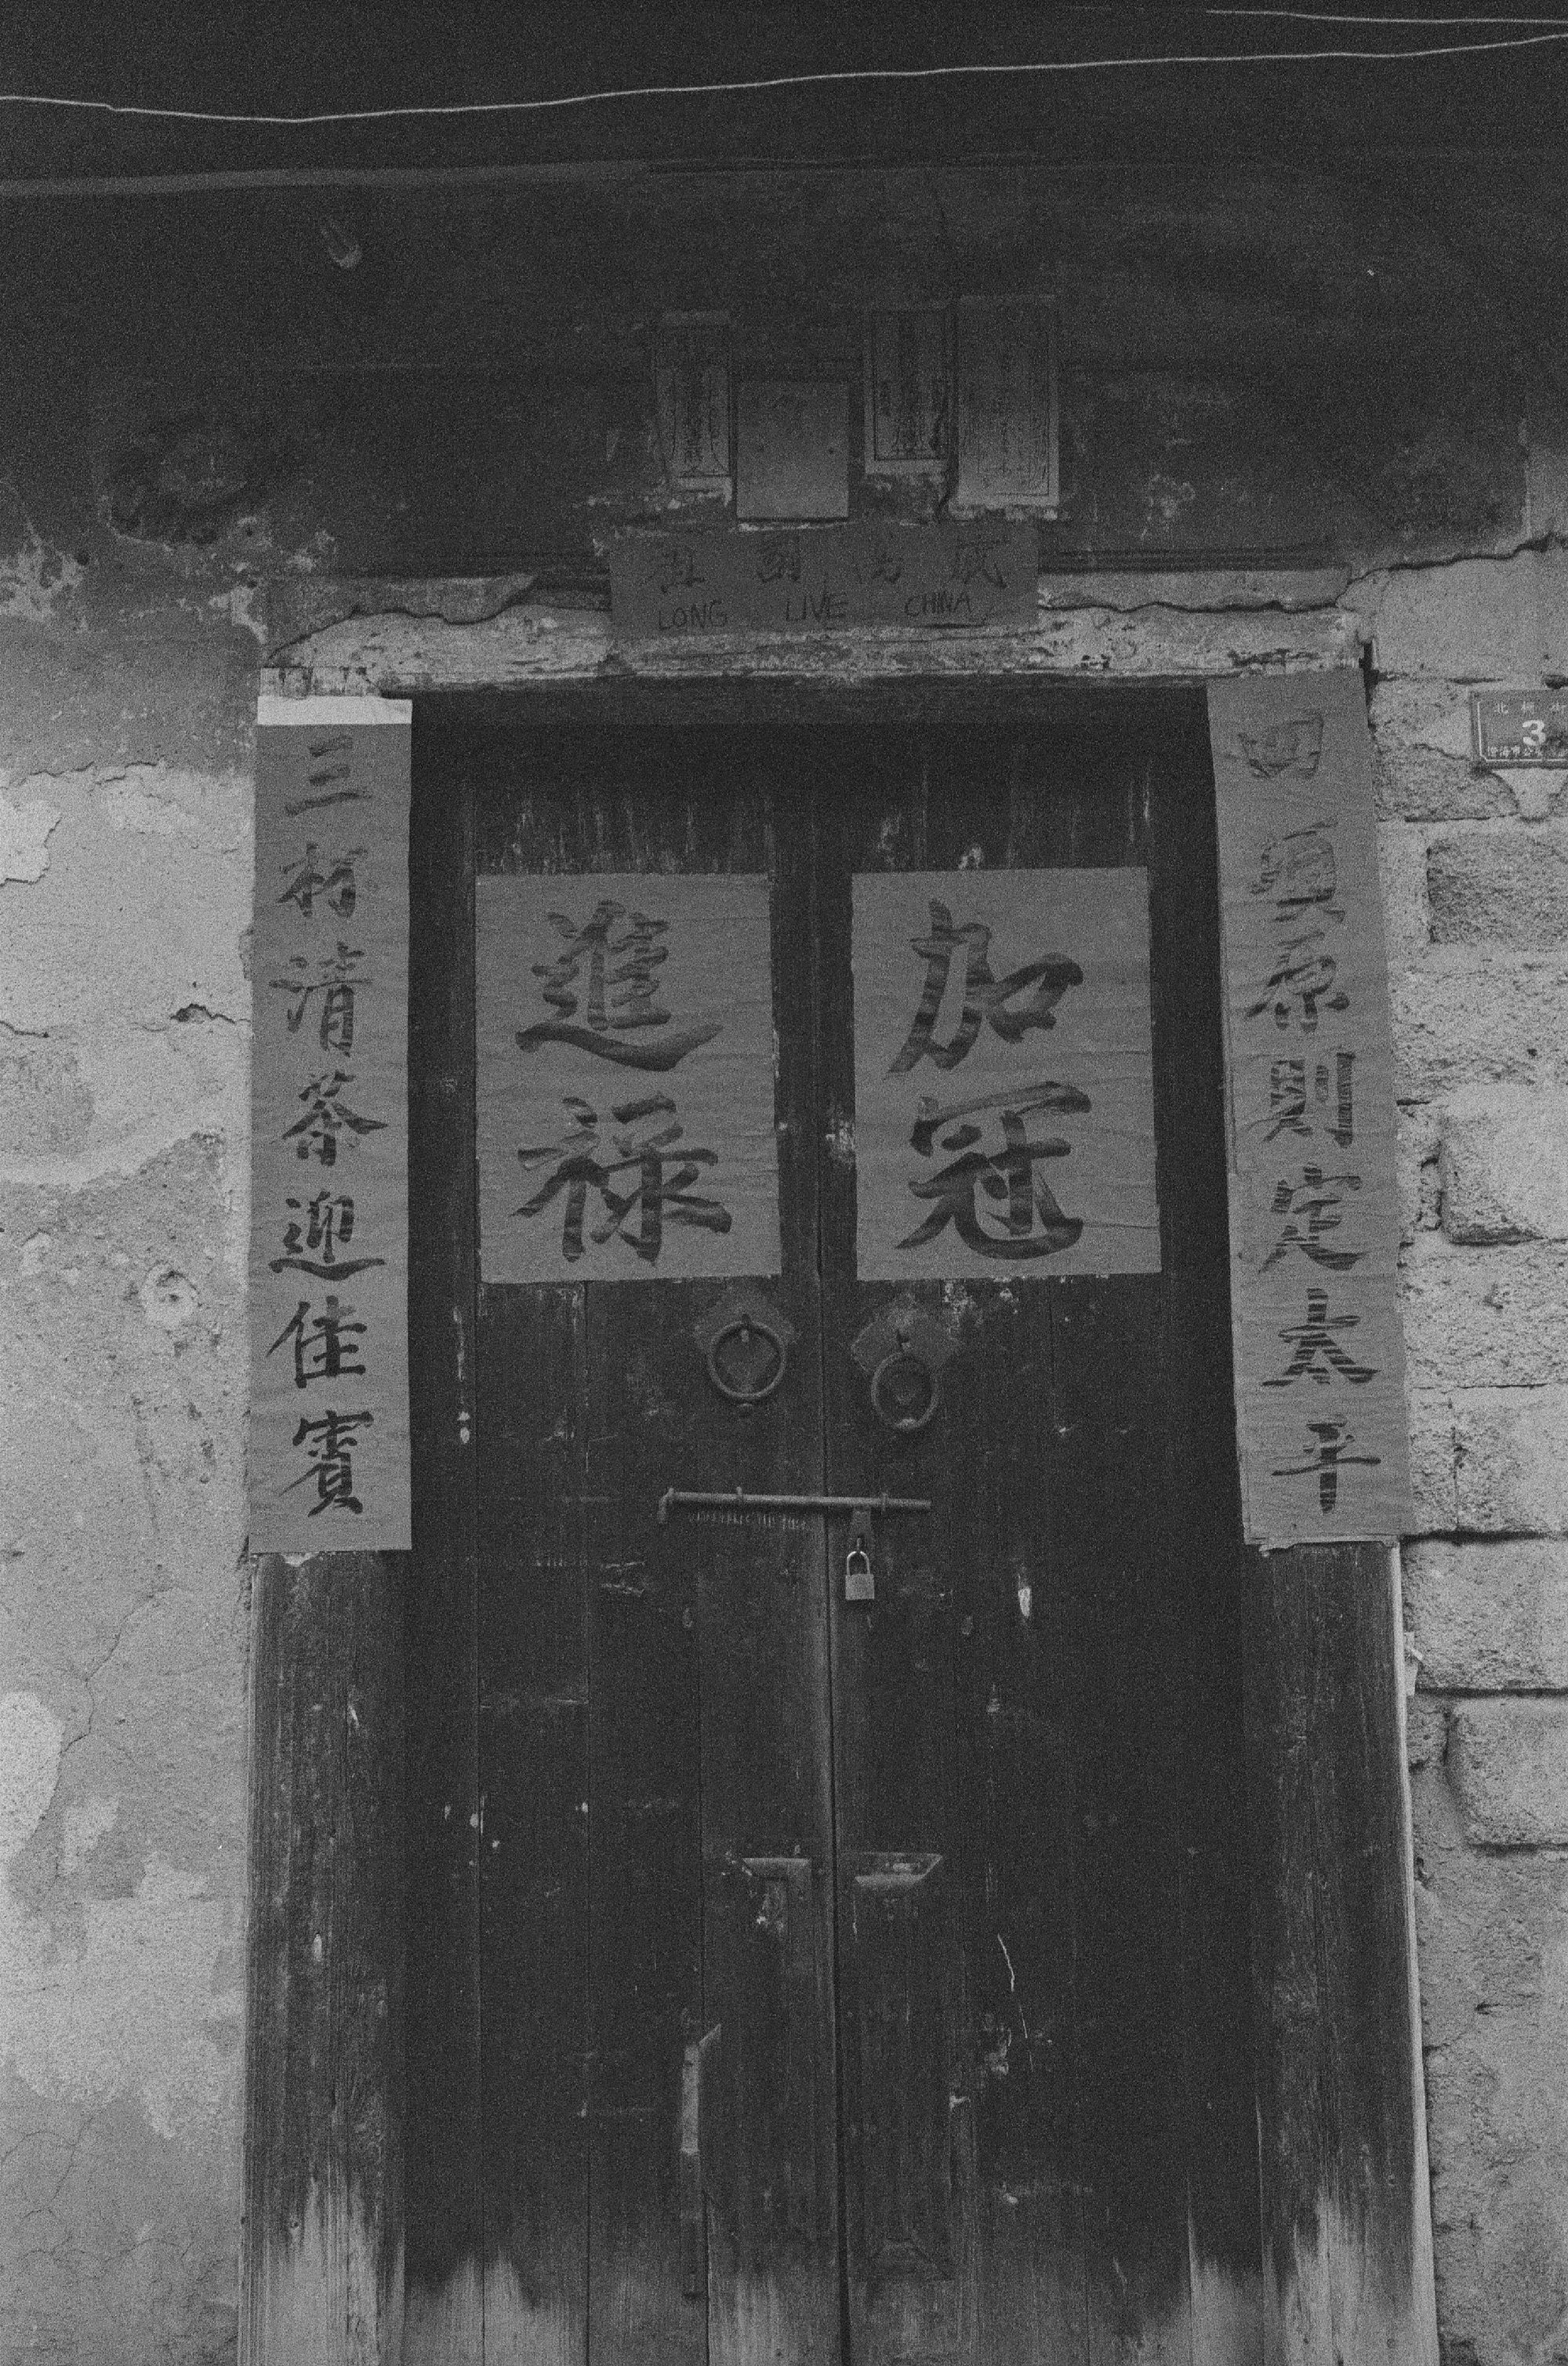 LONG LIVE CHINA
四項原則定太平
加冠
進祿
三杯清茶迎佳賓
3